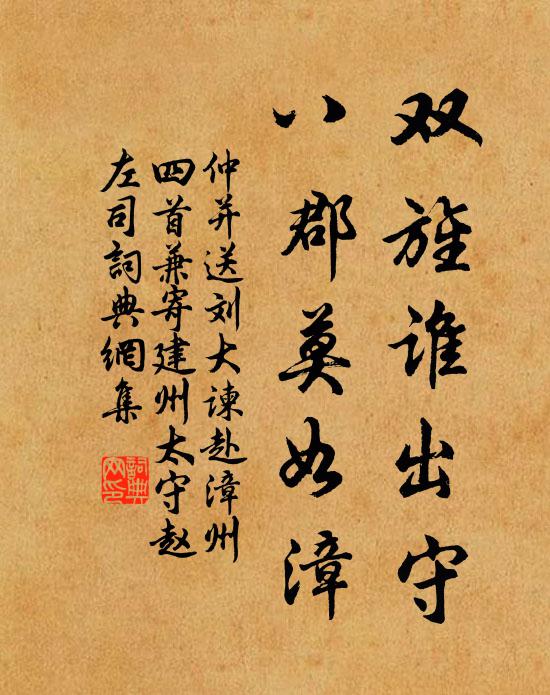 双旌谁出守
八郡莫如漳
仲并送刘大谏赴漳州
四首兼寄建州太守赵
左司詞典網集
詞典
网印